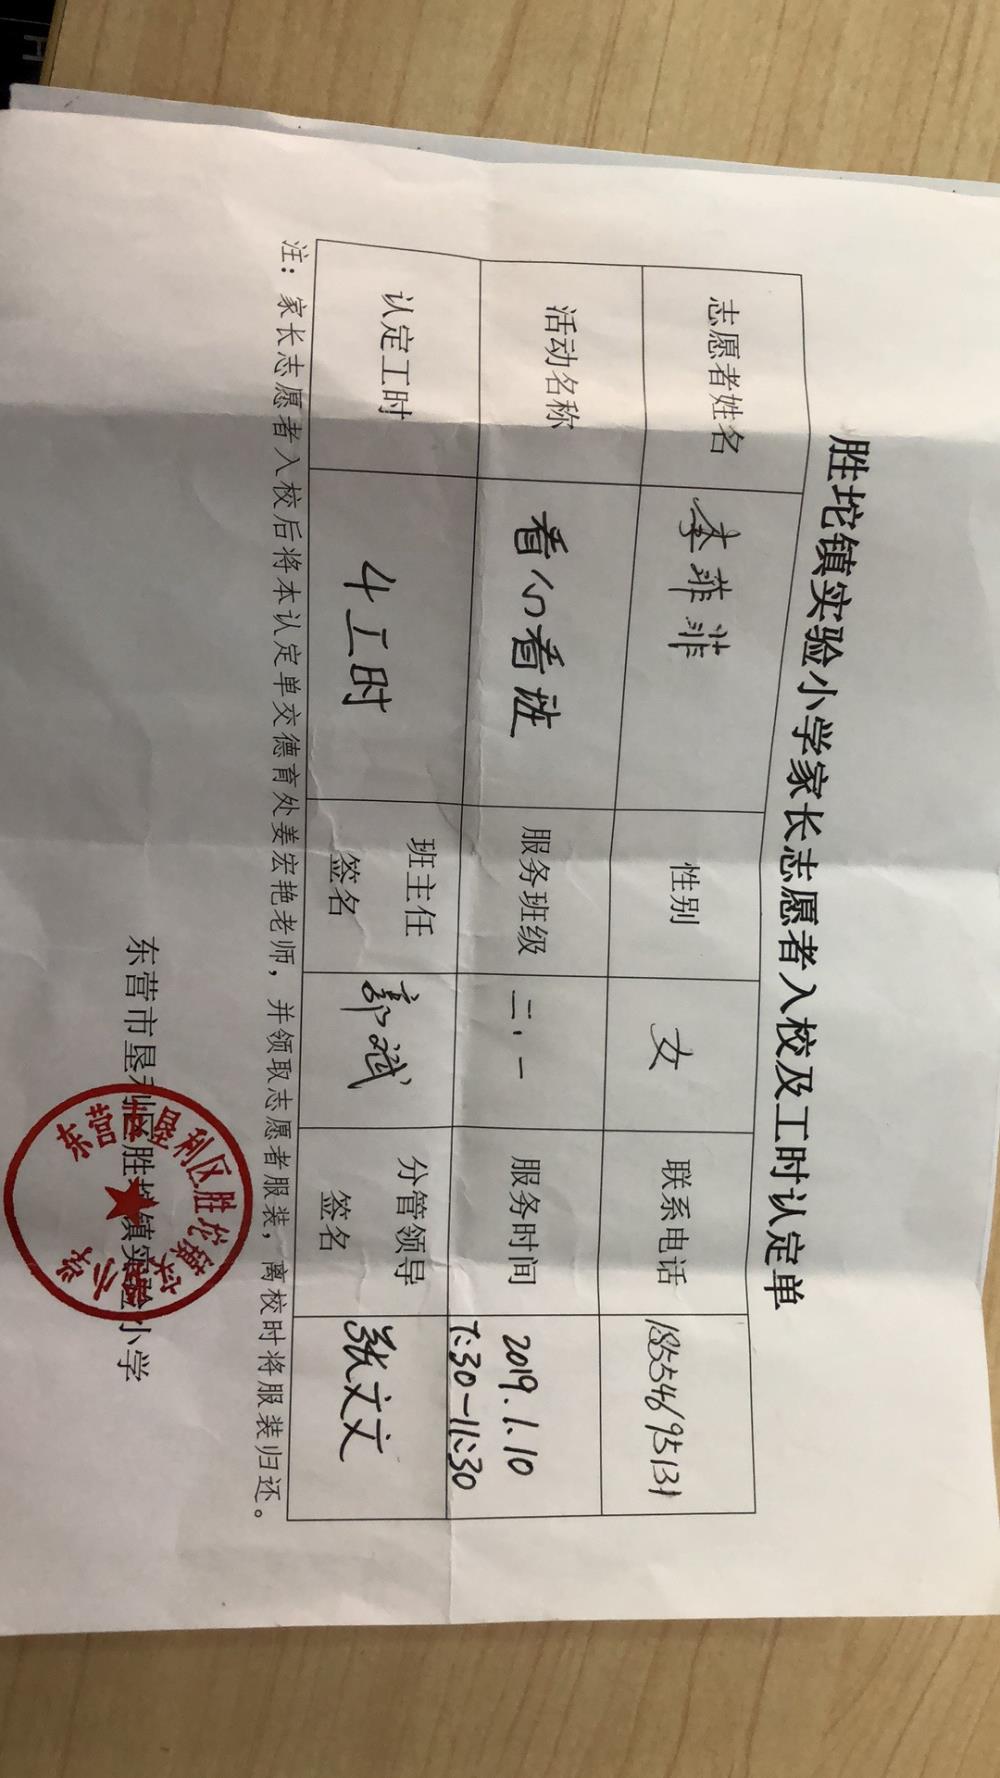 胜坨镇实验小学家长志愿者入校及工时认定单
志愿者姓名 李菲菲 性别 女 联系电话
活动名称 看心看班 服务班级 二、一 服务时间 2019.1.10
7:30-11:30
认定工时 4工时 班主任签名 郭斌 分管领导签名 张文文
注：家长志愿者入校后将本认定单交德育处姜宏艳老师，并领取志愿者服装，离校时将服装归还。
东营市垦利区胜坨镇实验小学
东营市垦利区胜坨镇实验小学